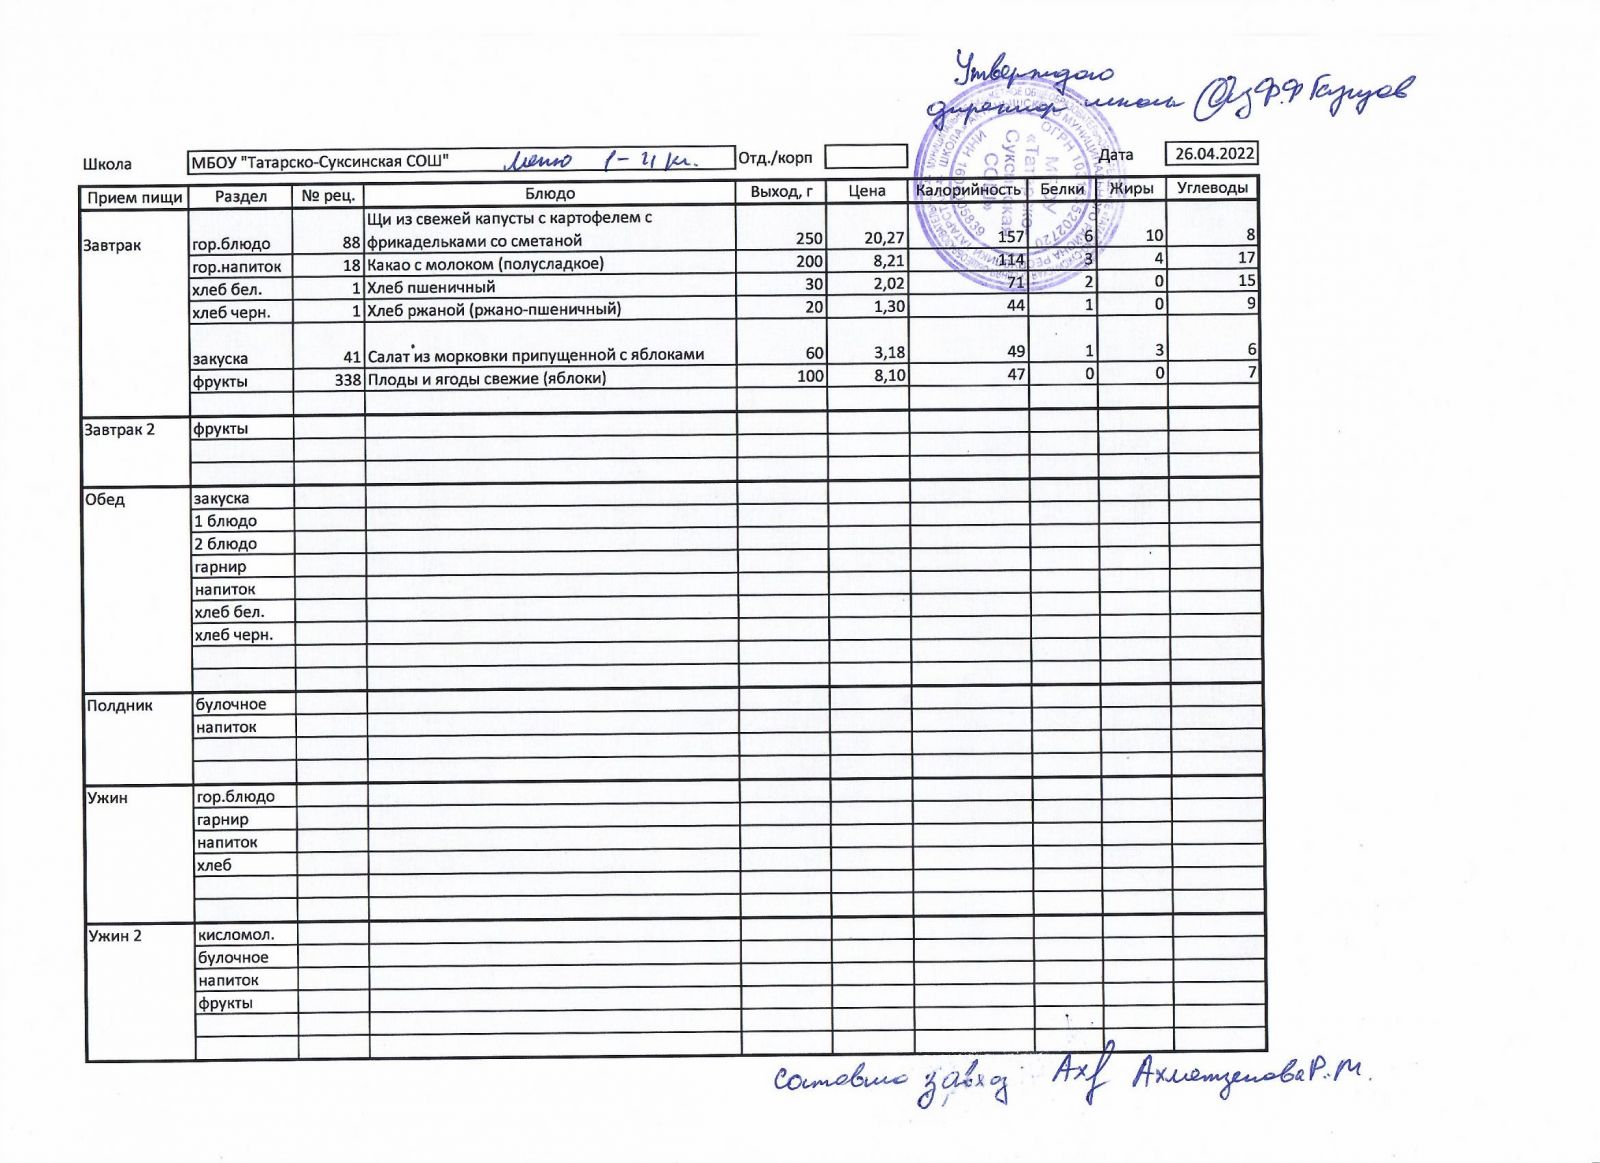 Утверждаю
директор школы Ф.Ф
Школа МБОУ "Татарско-Суксинская СОШ" Меню 1-4 кл. Отд./корп Дата 26.04.2022
Прием пищи Раздел № рец. Блюдо Выход, г Цена Калорийность Белки Жиры Углеводы
Щи из свежей капусты с картофелем с
Завтрак гор.блюдо 88 фрикадельками со сметаной 250 20,27 157 6 10 8
гор.напиток 18 Какао с молоком (полусладкое) 200 8,21 114 3 4 17
хлеб бел. 1 Хлеб пшеничный 30 2,02 71 2 0 15
хлеб черн. 1 Хлеб ржаной (ржано-пшеничный) 20 1,30 44 1 0 9
закуска 41 Салат из морковки припущенной с яблоками 60 3,18 49 1 3 6
фрукты 338 Плоды и ягоды свежие (яблоки) 100 8,10 47 0 0 7
Завтрак 2 фрукты
Обед закуска
1 блюдо
2 блюдо
гарнир
напиток
хлеб бел.
хлеб черн.
Полдник булочное
напиток
Ужин гор.блюдо
гарнир
напиток
хлеб
Ужин 2 кисломол.
булочное
напиток
фрукты
Составила завхоз Р.М.